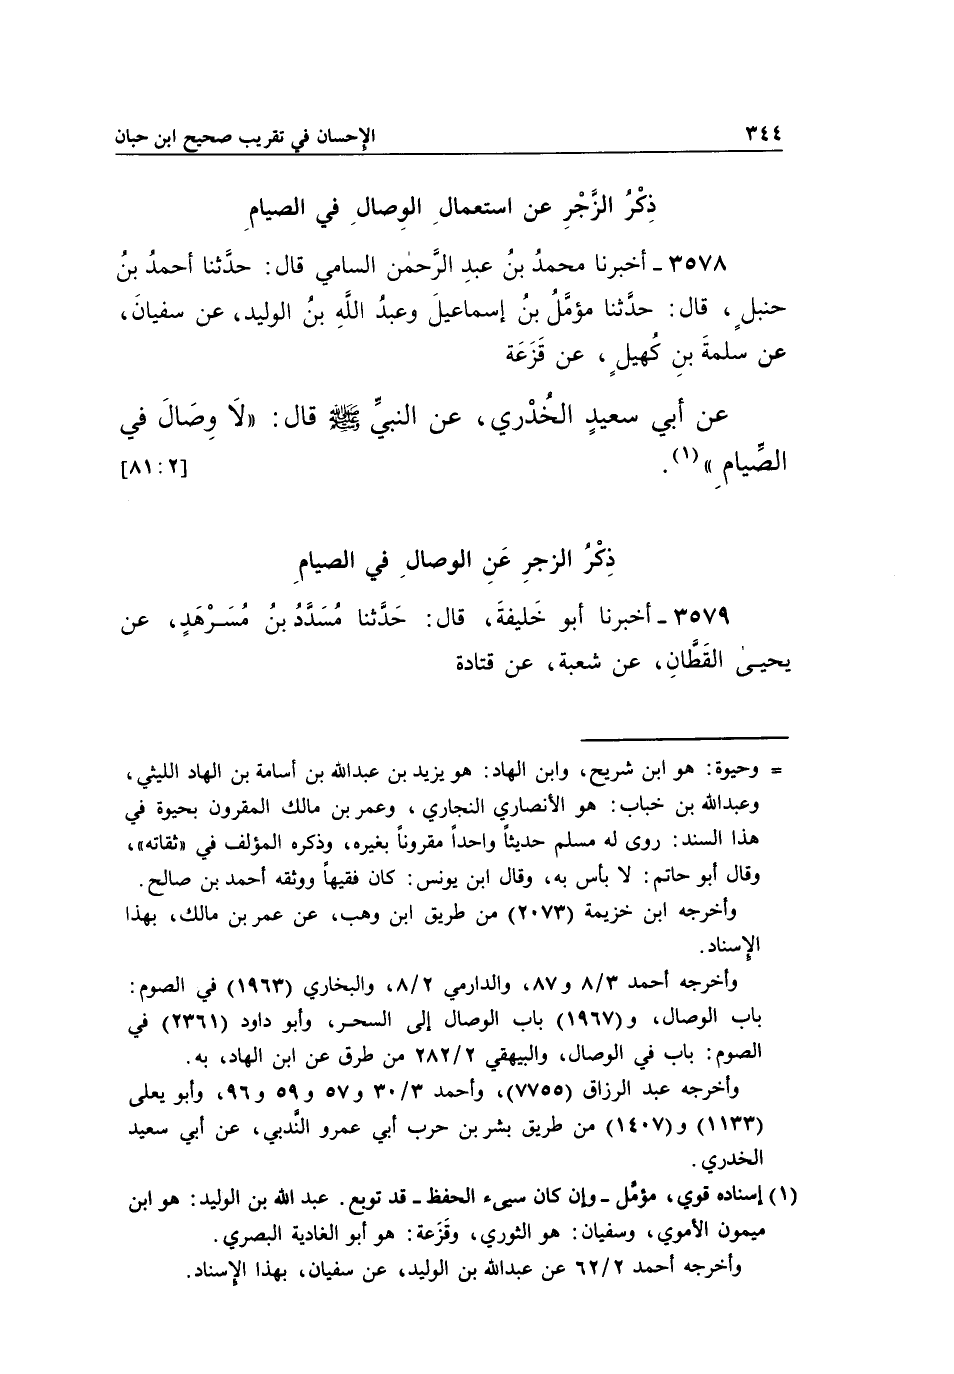 ٣٤٤ الإحسان في تقريب صحيح ابن حبان
ذِكْرُ الزَّجْرِ عن استعمالِ الوِصالِ في الصيامِ
٣٥٧٨ ـ أخبرنا محمدُ بنُ عبدِ الرَّحمٰن السامي قال: حدَّثنا أحمدُ بنُ
حنبلٍ، قال: حدَّثنا مؤمَّلُ بنُ إسماعيلَ وعبدُ اللَّهِ بنُ الوليد، عن سفيانَ،
عن سلمةَ بنِ كُهيلٍ، عن قَزَعَة
عن أبي سعيدٍ الخُدْري، عن النبيِّ ﷺ قال: «لَا وِصَالَ في
الصِّيامِ»(١). [٢: ٨١]
ذِكْرُ الزجرِ عَنِ الوصالِ في الصيامِ
٣٥٧٩ ـ أخبرنا أبو خَليفةَ، قال: حَدَّثنا مُسَدَّدُ بنُ مُسَرْهَدٍ، عن
يحيىٰ القَطَّانِ، عن شعبة، عن قتادة
= وحيوة: هو ابن شريح، وابن الهاد: هو يزيد بن عبدالله بن أسامة بن الهاد الليثي،
وعبدالله بن خباب: هو الأنصاري النجاري، وعمر بن مالك المقرون بحيوة في
هذا السند: روى له مسلم حديثاً واحداً مقروناً بغيره، وذكره المؤلف في «ثقاته»،
وقال أبو حاتم: لا بأس به، وقال ابن يونس: كان فقيهاً ووثقه أحمد بن صالح.
وأخرجه ابن خزيمة (٢٠٧٣) من طريق ابن وهب، عن عمر بن مالك، بهذا
الإسناد.
وأخرجه أحمد ٨/٣ و٨٧، والدارمي ٨/٢، والبخاري (١٩٦٣) في الصوم:
باب الوصال، و(١٩٦٧) باب الوصال إلى السحر، وأبو داود (٢٣٦١) في
الصوم: باب في الوصال، والبيهقي ٢٨٢/٢ من طرق عن ابن الهاد، به.
وأخرجه عبد الرزاق (٧٧٥٥)، وأحمد ٣٠/٣ و٥٧ و٥٩ و٩٦، وأبو يعلى
(١١٣٣) و(١٤٠٧) من طريق بشر بن حرب أبي عمرو النَّدبي، عن أبي سعيد
الخدري.
(١) إسناده قوي، مؤمَّل ـ وإن كان سيىء الحفظ ـ قد توبع. عبد الله بن الوليد: هو ابن
ميمون الأموي، وسفيان: هو الثوري، وقَزَعة: هو أبو الغادية البصري.
وأخرجه أحمد ٦٢/٢ عن عبدالله بن الوليد، عن سفيان، بهذا الإسناد.